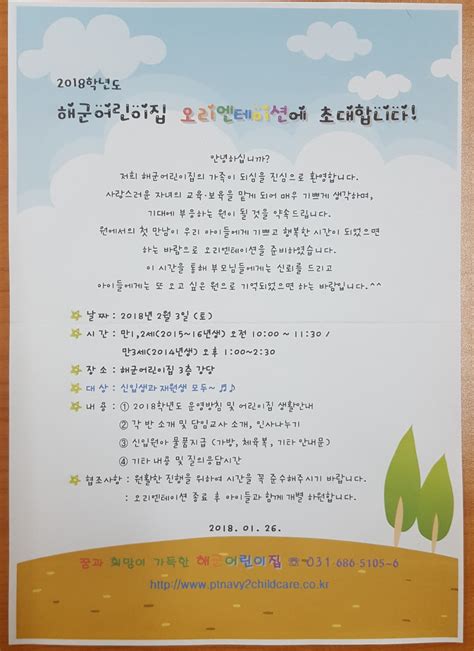 2018학년도
해군어린이집 오리엔테이션에 초대합니다!
안녕하십니까?
저희 해군어린이집의 가족이 되심을 진심으로 환영합니다.
사랑스러운 자녀의 교육·보육을 맡게 되어 매우 기쁘게 생각하며,
기대에 부응하는 원이 될 것을 약속드립니다.
원에서의 첫 만남이 우리 아이들에게 기쁘고 행복한 시간이 되었으면
하는 바람으로 오리엔테이션을 준비하였습니다.
이 시간을 통해 부모님들에게는 신뢰를 드리고
아이들에게는 또 오고 싶은 원으로 기억되었으면 하는 바람입니다.^^
날 짜 : 2018년 2월 3일 (토)
시 간 : 만1,2세(2015~16년생) 오전 10:00 ~ 11:30 /
만3세(2014년생) 오후 1:00~2:30
장 소 : 해군어린이집 3층 강당
대 상 : 신입생과 재원생 모두~ ♬♪
내 용 : ① 2018학년도 운영방침 및 어린이집 생활안내
② 각 반 소개 및 담임교사 소개, 인사나누기
③ 신입원아 물품지급 (가방, 체육복, 기타 안내문)
④ 기타 내용 및 질의응답시간
협조사항 : 원활한 진행을 위하여 시간을 꼭 준수해주시기 바랍니다.
: 오리엔테이션 종료 후 아이들과 함께 개별 하원합니다.
2018. 01. 26.
꿈과 희망이 가득한 해군어린이집 ☎ 031-686-5105~6
http://www.ptnavy2childcare.co.kr